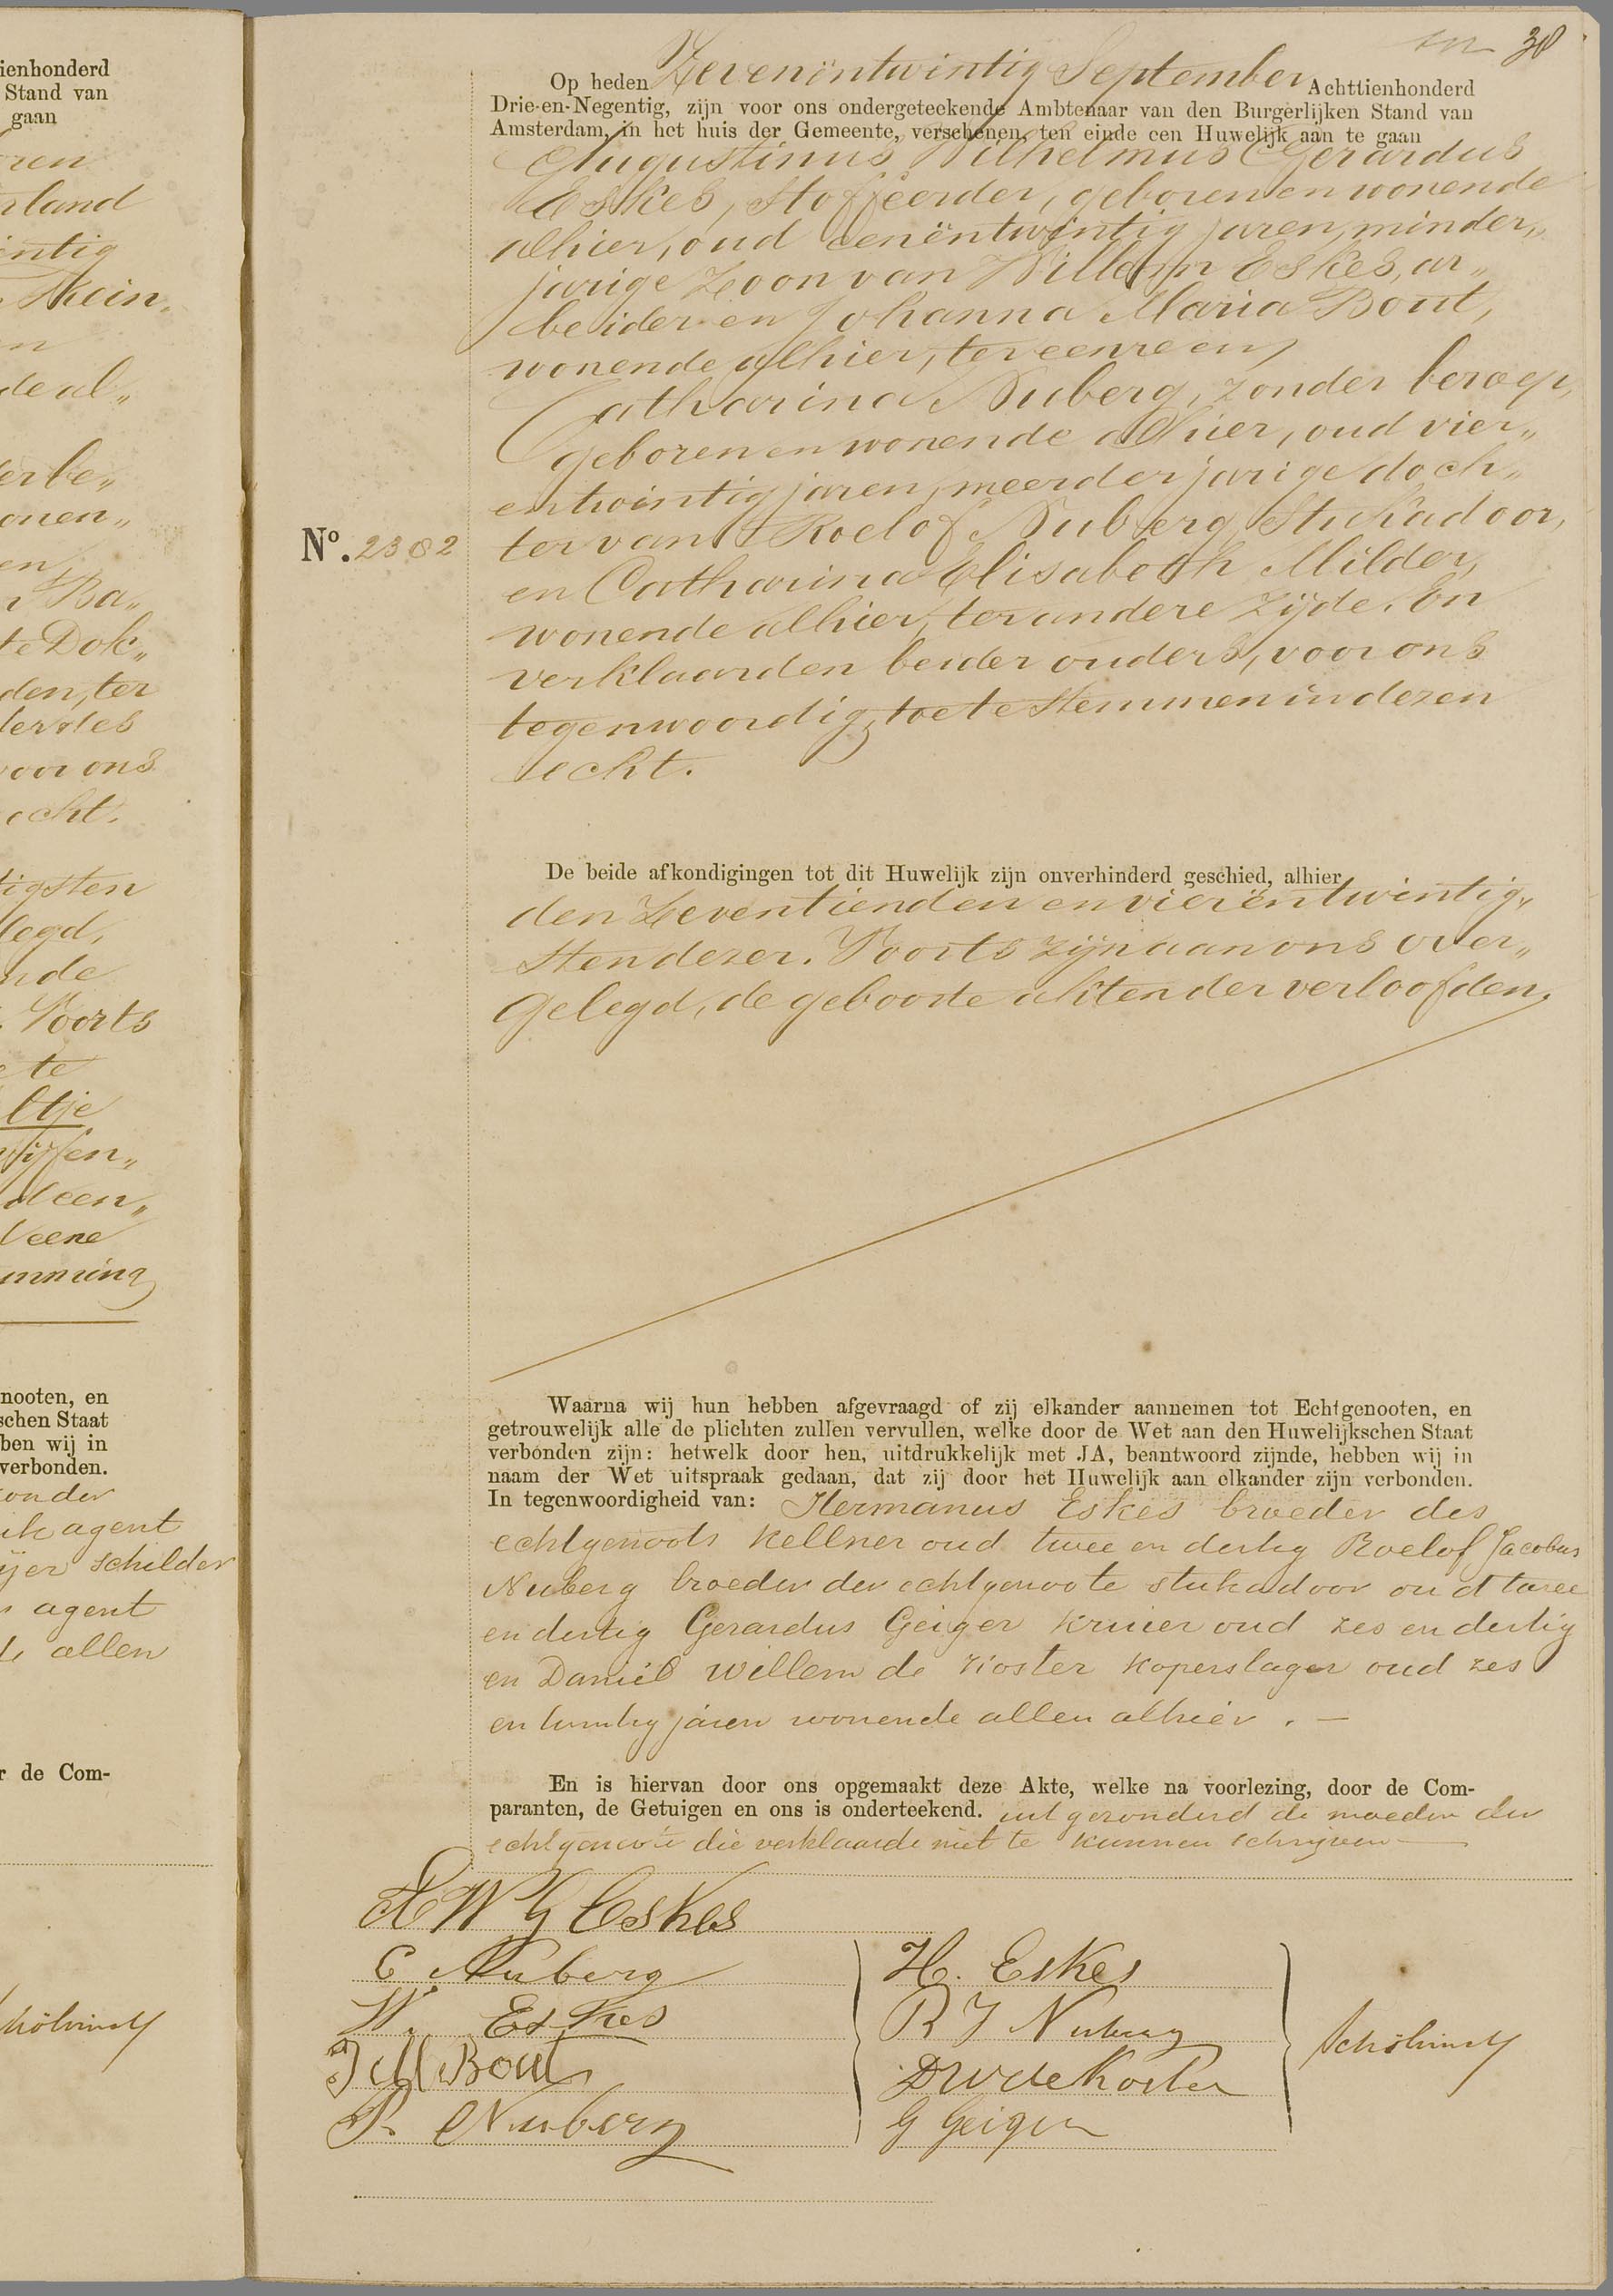 ienhonderd
Stand van
gaan
ren
rland
intig
Klein„
n
de al„
erbe„
onen„
en
Ba„
te Dok„
den, ter
voor ons
echt.
tigsten
legd,
nde
. Voorts
te
ltje
een„
Veene
emming
nooten, en
schen Staat
ben wij in
verbonden.
onder
agent
schilder
agent
allen
r de Com-
38
Op heden Zevenëntwintig September Achttienhonderd
Drie-en-Negentig, zijn voor ons ondergeteekende Ambtenaar van den Burgerlijken Stand van
Amsterdam, in het huis der Gemeente, verschenen, ten einde een Huwelijk aan te gaan
Augustinus Wilhelmus Gerardus
Eskes, Stoffeerder, geboren en wonende
alhier, oud eenëntwintig jaren, minder„
jarige Zoon van Willem Eskes, ar„
beider en Johanna Maria Bout,
wonende alhier, ter eenre en
Catharina Nuberg, zonder beroep,
geboren en wonende alhier, oud vier„
entwintig jaren, meerderjarige doch„
No. 2382
ter van Roelof Nuberg, Stukadoor,
en Catharina Elisabeth Milder,
wonende alhier, ter andere zijde. En
verklaarden beider ouders, voor ons
tegenwoordig, toetestemmen in dezen
echt.
De beide afkondigingen tot dit Huwelijk zijn onverhinderd geschied, alhier
den Zeventienden en vierëntwintig„
sten dezer. Voorts zijn aan ons over„
gelegd, de geboorte akten der verloofden.
Waarna wij hun hebben afgevraagd of zij elkander aannemen tot Echtgenooten, en
getrouwelijk alle de plichten zullen vervullen, welke door de Wet aan den Huwelijkschen Staat
verbonden zijn: hetwelk door hen, uitdrukkelijk met JA, beantwoord zijnde, hebben wij in
naam der Wet uitspraak gedaan, dat zij door het Huwelijk aan elkander zijn verbonden.
In tegenwoordigheid van: Hermanus Eskes broeder des
echtgenoots kellner oud twee en dertig Roelof Jacobus
Nuberg broeder der echtgenoote stukadoor oud twee
en dertig Gerardus Geiger kruier oud zes en dertig
en Daniël Willem de Koster koperslager oud zes
en twintig jaren wonende allen alhier. —
En is hiervan door ons opgemaakt deze Akte, welke na voorlezing, door de Com-
paranten, de Getuigen en ons is onderteekend. uitgezonderd de moeder der
echtgenoote die verklaarde niet te kunnen schrijven —
A W G Eskes
C Nuberg
W. Eskes
J M Bout
R Nuberg
H. Eskes
R J Nuberg
D W de Koster
G Geiger